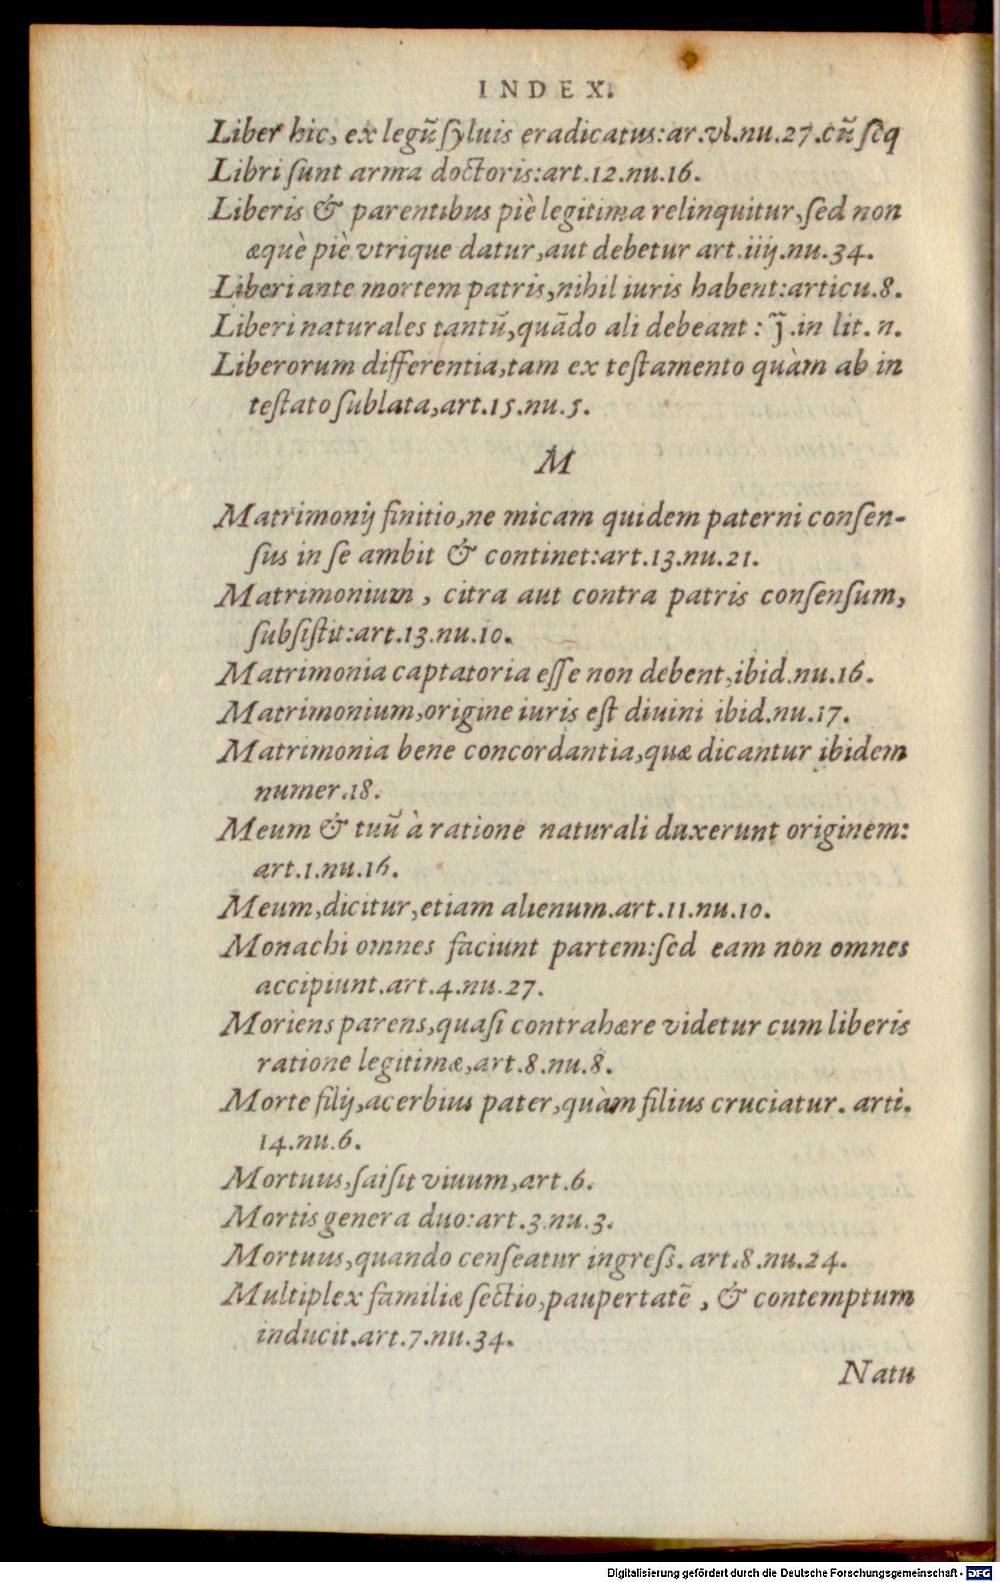 INDEX.
Liber hic, ex legũ ſyluis eradicatus:ar.vl.nu.27.cũ ſeq
Libri ſunt arma doctoris:art.12.nu.16.
Liberis & parentibus piè legitima relinquitur,ſed non
æquè piè vtrique datur,aut debetur art.iiij.nu.34.
Liberi ante mortem patris,nihil iuris habent:articu.8.
Liberi naturales tantũ,quãdo ali debeant : j̃.in lit. n.
Liberorum differentia,tam ex teſtamento quàm ab in
teſtato ſublata,art.15.nu.5.
M
Matrimonij finitio,ne micam quidem paterni conſen-
ſus in ſe ambit & continet:art.13.nu.21.
Matrimonium , citra aut contra patris conſenſum,
ſubſiſtit:art.13.nu.10.
Matrimonia captatoria eſſe non debent,ibid.nu.16.
Matrimonium,origine iuris eſt diuini ibid.nu.17.
Matrimonia bene concordantia,quæ dicantur ibidem
numer.18.
Meum & tuũ à ratione naturali duxerunt originem:
art.1.nu.16.
Meum,dicitur,etiam alienum.art.11.nu.10.
Monachi omnes faciunt partem:ſed eam non omnes
accipiunt.art.4.nu.27.
Moriens parens,quaſi contrahære videtur cum liberis
ratione legitimæ,art.8.nu.8.
Morte filij,acerbius pater,quàm filius cruciatur. arti.
14.nu.6.
Mortuus,ſaiſit viuum,art.6.
Mortis genera duo:art.3.nu.3.
Mortuus,quando cenſeatur ingreſſ. art.8.nu.24.
Multiplex familiæ ſectio,paupertatẽ , & contemptum
inducit.art.7.nu.34.
Natu
Digitalisierung gefördert durch die Deutsche Forschungsgemeinschaft - DFG